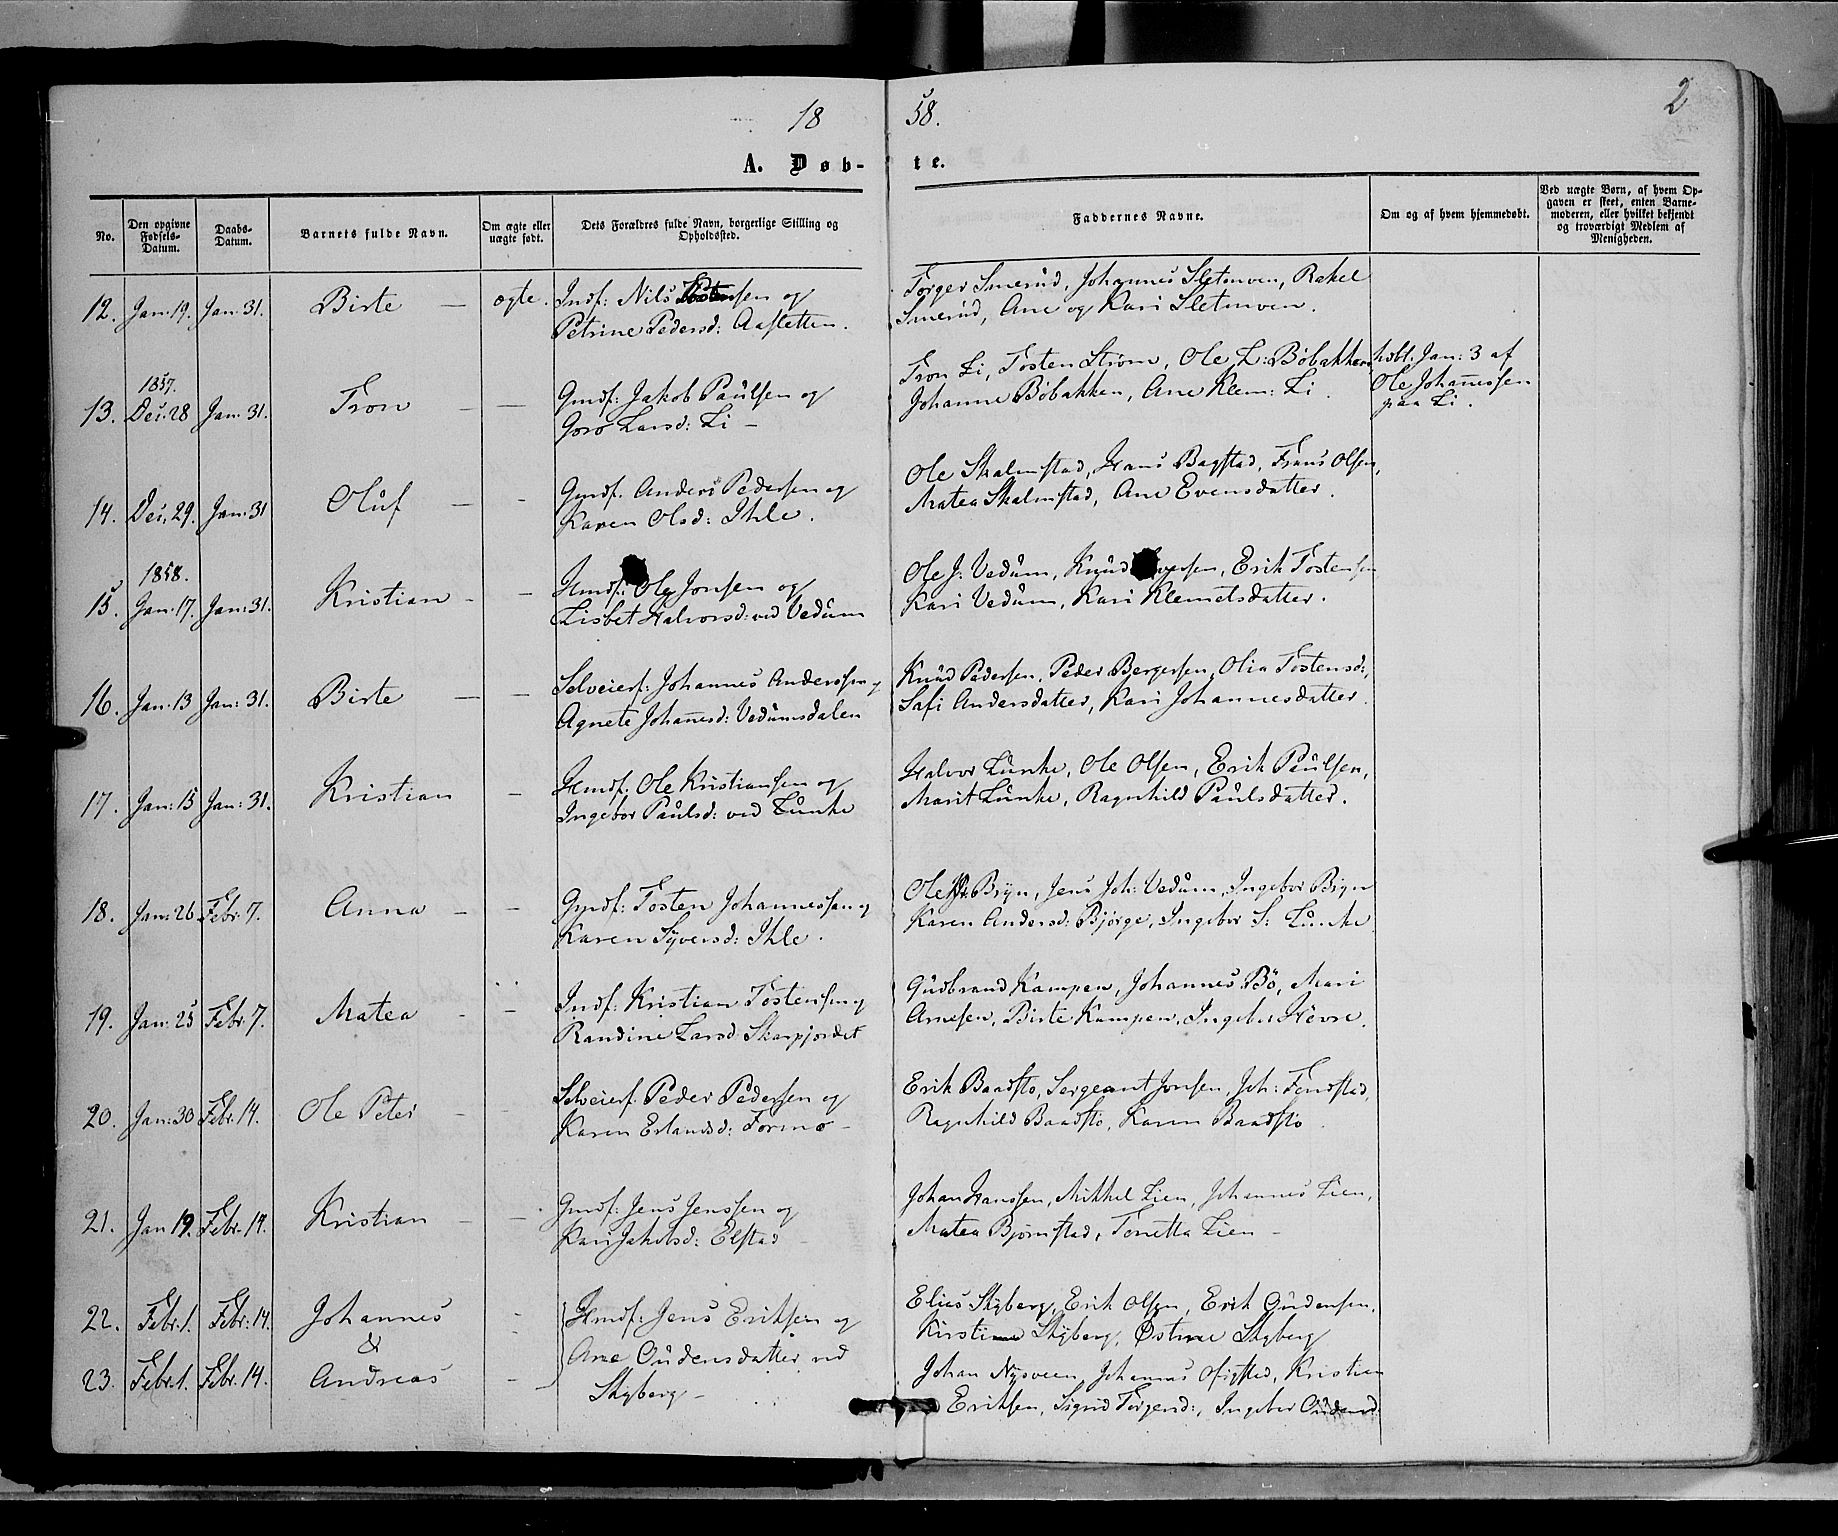 18 58. 2
A. Døb- te.
No. Den opgivne Fødsels-Datum. Daabs-Datum. Barnets fulde Navn. Om ægte eller uægte født. Dets Forældres fulde Navn, borgerlige Stilling og Opholdssted. Faddernes Navne. Om og af hvem hjemmedøbt. Ved uægte Børn, af hvem Opgaven er skeet, enten Barnemoderen, eller hvilket bekjendt og troværdigt Medlem af Menigheden.
12. Jan: 19. Jan: 31. Birte — ægte. Indf: Nils Tostensen og
Petrine Pedersd: Aasletten.
Torger Smerud, Johannes Sletmoen, Rakel
Smerud, Ane og Kari Sletmoen.
1857.
13. Dec. 28 Jan: 31. Tron — — Gmdf: Jakob Paulsen og
Goro Larsd: Li —
Tron Li, Tosten Strøm, Ole L: Böbakken
Johanne Böbakken, Ane Klem: Li.
hdbt. Jan: 3 af
Ole Johannessen
paa Li.
14. Dec. 29. Jan: 31 Oluf — - Gmdf. Anders Pedersen og
Karen Olsd: Ihle.
Ole Skalmstad, Hans Bagstad, Frans Olsen,
Matea Skalmstad, Ane Evensdatter.
1858.
15. Jan: 17. Jan: 31. Kristian - - Hmdf: Ole Jonsen og
Lisbet Halvorsd: ved Vedum
Ole J: Vedum, Knud, Erik Tostensen
Kari Vedum, Kari Klemetsdatter.
16. Jan: 13 Jan: 31. Birte — — Selveierf: Johannes Anderssen og
Agnete Johannesd: Vedumsdalen
Knud Pedersen, Peder Bergersen, Olia Tostensd:,
Safi Andersdatter, Kari Johannesdatter.
17. Jan: 15 Jan: 31. Kristian - Hmdf. Ole Kristiansen og
Ingebor Paulsd: ved Lunke
Halvor Lunke, Ole Olsen, Erik Paulsen,
Marit Lunke, Ragnhild Paulsdatter.
18. Jan: 26 Febr. 7. Anna - - Gmdf: Tosten Johannessen og
Karen Syversd: Ihle.
Ole Bryn, Jens Joh: Vedum, Ingebor Bryn
Karen Andersd: Bjørge, Ingebor S: Lunke
19. Jan: 25 Febr. 7. Matea - - Indf: Kristian Tostensen og
Randine Larsd: Skarpjordet
Gudbrand Kampen, Johannes Bö, Mari
Arnesen, Birte Kampen, Ingebor Hevre.
20. Jan: 30 Febr. 14. Ole Peter - - Selveierf. Peder Pedersen og
Karen Erlandsd: Formo -
Erik Baadstö, Sergeant Jonsen, Joh: Fendstad,
Ragnhild Baadstö, Karen Baadstö.
21. Jan 19. Febr. 14. Kristian - - Gmdf: Jens Jenssen og
Kari Jakobsd: Elstad -
Johan Hanssen, Mikkel Lien, Johannes Lien,
Matea Bjørnstad, Tonetta Lien -
22. Febr. 1. Febr. 14. Johannes - Hmdf: Jens Eriksen og
&
Ane Oudensdatter ved
Elies Skyberg, Erik Olsen, Erik Oudensen,
Kirstine Skyberg, Østine Skyberg
23. Febr. 1. Febr. 14. Andreas - Skyberg -
Johan Nysveen, Johannes, Kristian
Eriksen, Sigrid Torgersd:, Ingebor Oudensd: